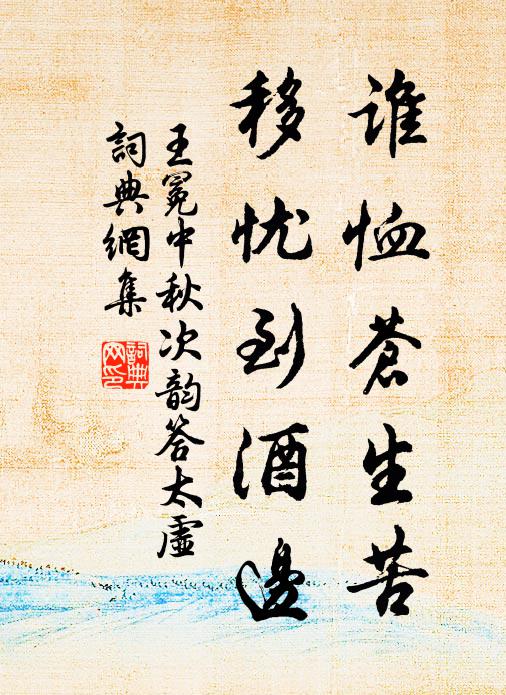 谁恤苍生苦
移忧到酒边
王冕中秋次韵答太虚
詞典網集
詞典网印